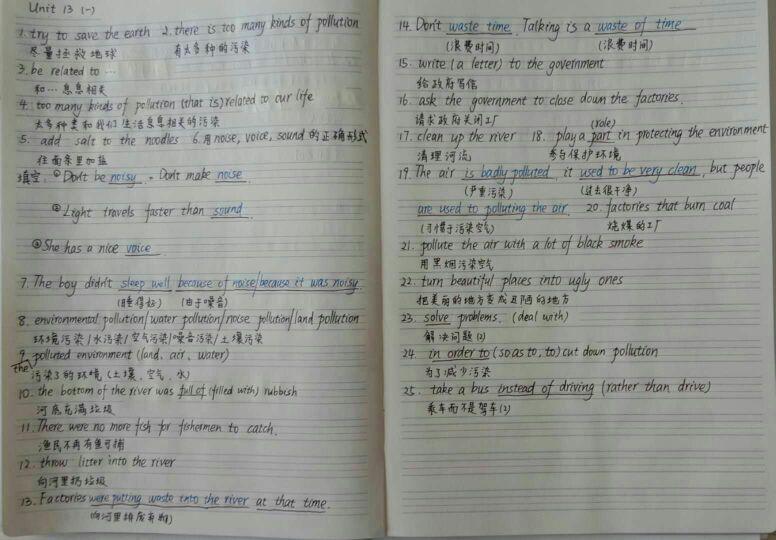 Unit 13 (一)
1. try to save the earth 2. there is too many kinds of pollution
尽量拯救地球 有太多种的污染
3. be related to …
和…息息相关
4. too many kinds of pollution (that is) related to our life
太多种类和我们生活息息相关的污染
5. add salt to the noodles 6. 用noise, voice, sound 的正确形式
往面条里加盐
填空. ① Don't be noisy. = Don't make noise.
② Light travels faster than sound.
③ She has a nice voice.
7. The boy didn't sleep well because of noise/because it was noisy.
(睡得好) (由于噪音)
8. environmental pollution/water pollution/noise pollution/land pollution
环境污染/水污染/空气污染/噪音污染/土壤污染
9. the polluted environment (land, air, water)
污染了的环境 (土壤, 空气, 水)
10. the bottom of the river was full of (filled with) rubbish
河底充满垃圾
11. There were no more fish for fishermen to catch.
渔民不再有鱼可捕
12. throw litter into the river
向河里扔垃圾
13. Factories were putting waste into the river at that time.
(向河里排废弃物)
14. Don't waste time. Talking is a waste of time
(浪费时间) (浪费时间)
15. write (a letter) to the government
给政府写信
16. ask the government to close down the factories.
请求政府关闭工厂 (role)
17. clean up the river 18. play a part in protecting the environment
清理河流 参与保护环境
19. The air is badly polluted, it used to be very clean, but people
(严重污染) (过去很干净)
are used to polluting the air. 20. factories that burn coal
(习惯于污染空气) 烧煤的工厂
21. pollute the air with a lot of black smoke
用黑烟污染空气
22. turn beautiful places into ugly ones
把美丽的地方变成丑陋的地方
23. solve problems. (deal with)
解决问题 (2)
24. in order to (so as to, to) cut down pollution
为了减少污染
25. take a bus instead of driving (rather than drive)
乘车而不是驾车 (2)